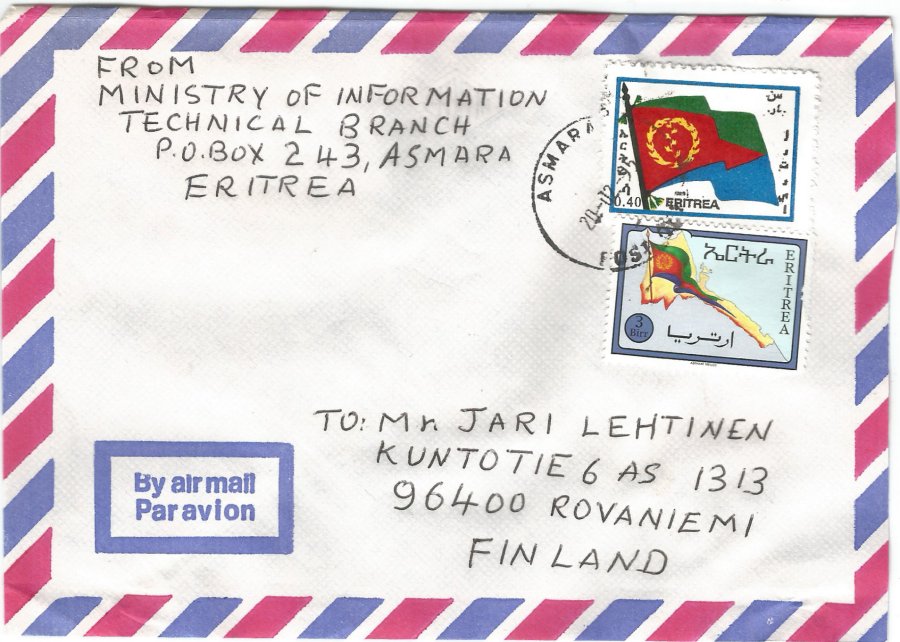 FROM
MINISTRY OF INFORMATION
TECHNICAL BRANCH
P.O.BOX 243, ASMARA
ERITREA
ASMARA
0.40 ERITREA
ኤርትራ
ERITREA
3
Birr
ارتريا
TO: Mr. JARI LEHTINEN
KUNTOTIE 6 AS 1313
96400 ROVANIEMI
FINLAND
By air mail
Par avion